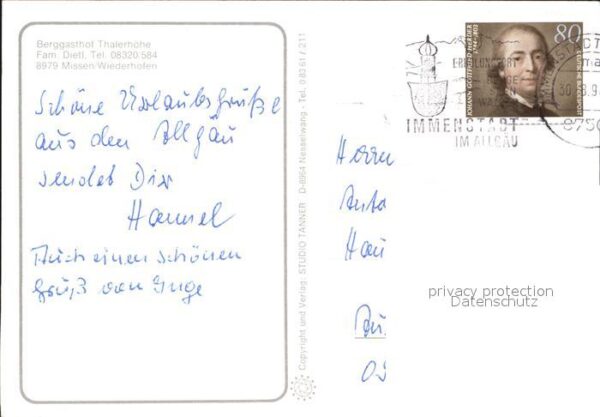 Berggasthof Thalerhöhe
Fam. Dietl, Tel. 08320/584
8979 Missen-Wiederhofen
Schöne Urlaubsgrüße
aus dem Allgäu
sendet Dir
Hannel
Auch einen schönen
Gruß von Inge
Copyright und Verlag: STUDIO TANNER · D-8964 Nesselwang · Tel. 0 83 61 / 2 11
JOHANN GOTTFRIED HERDER
1744-1803
80
DEUTSCHE BUNDESPOST
ERHOLUNGSORT
IMMENSTADT
IM ALLGÄU
IMMENSTADT
8750
Herrn
Anto
Hau
Au
privacy protection
Datenschutz